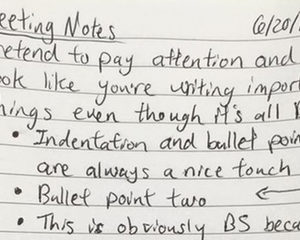 eeting Notes 6/20/
retend to pay attention and
ook like you're writing impor
hings even though it's all
• Indentation and bullet poin
are always a nice touch
• Bullet point two ←
• This is obviously BS beca